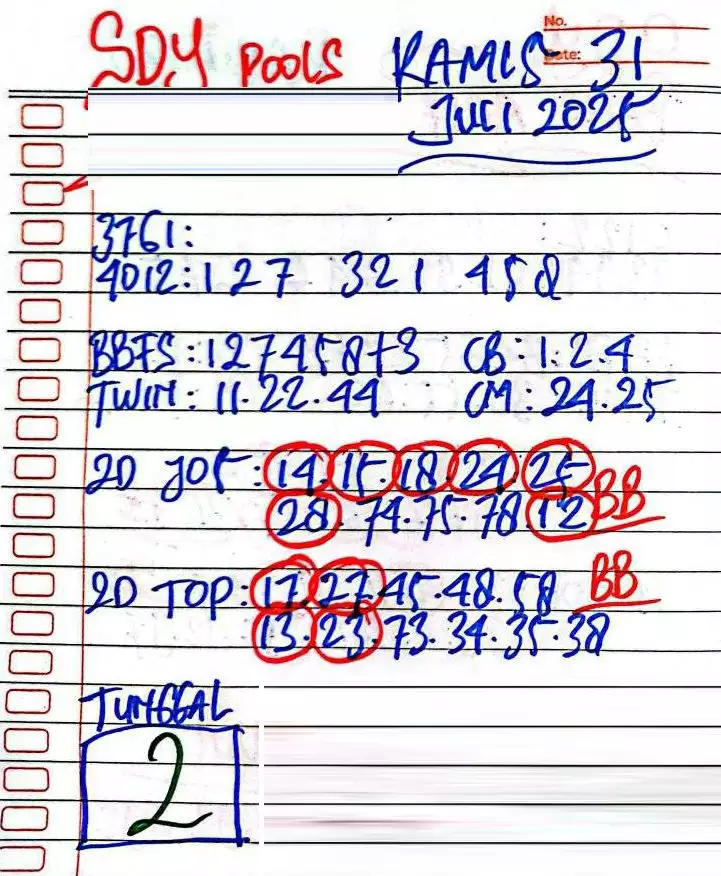 No.
Date:
SDY POOLS KAMIS 31
JULI 2025
3761:
4012: 127 321 458
BBFS: 127458+3 CB: 1.2.4
TWIN: 11.22.44 CM: 24.25
2D JOS: 14.15.18.24.25
28.74.75.78.12 BB
2D TOP: 17.27.45.48.58 BB
13.23.73.34.35.38
TUNGGAL
2